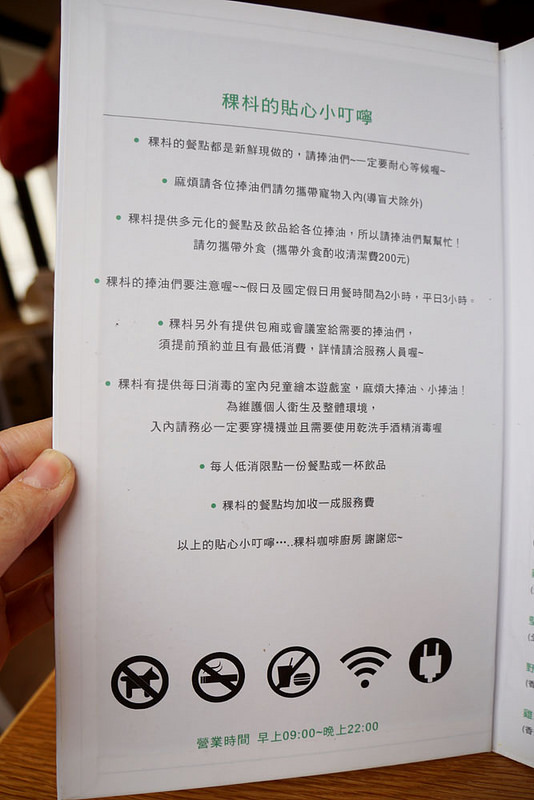 稞枓的貼心小叮嚀
稞枓的餐點都是新鮮現做的，請捧油們~一定要耐心等候喔~
麻煩請各位捧油們請勿攜帶寵物入內(導盲犬除外)
稞枓提供多元化的餐點及飲品給各位捧油，所以請捧油們幫幫忙！
請勿攜帶外食 (攜帶外食酌收清潔費200元)
稞枓的捧油們要注意喔~~假日及國定假日用餐時間為2小時，平日3小時。
稞枓另外有提供包廂或會議室給需要的捧油們，
須提前預約並且有最低消費，詳情請洽服務人員喔~
稞枓有提供每日消毒的室內兒童繪本遊戲室，麻煩大捧油、小捧油！
為維護個人衛生及整體環境，
入內請務必一定要穿襪襪並且需要使用乾洗手酒精消毒喔
每人低消限點一份餐點或一杯飲品
稞枓的餐點均加收一成服務費
以上的貼心小叮嚀…..稞枓咖啡廚房 謝謝您~
營業時間 早上09:00~晚上22:00